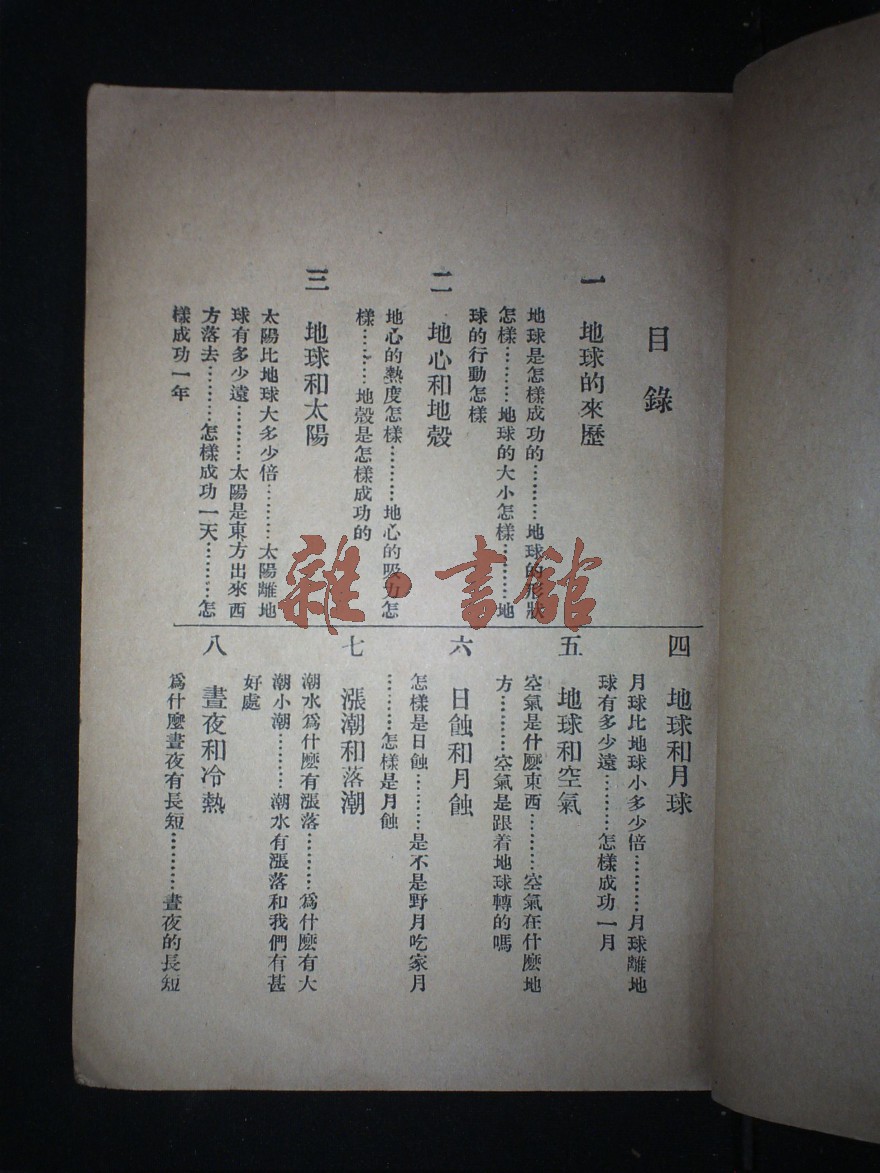 目錄
一 地球的來歷
地球是怎樣成功的…………地球的形狀
怎樣…………地球的大小怎樣…………地
球的行動怎樣
二 地心和地殼
地心的熱度怎樣…………地心的吸力怎
樣…………地殼是怎樣成功的
三 地球和太陽
太陽比地球大多少倍…………太陽離地
球有多少遠…………太陽是東方出來西
方落去…………怎樣成功一天…………怎
樣成功一年
四 地球和月球
月球比地球小多少倍…………月球離地
球有多少遠…………怎樣成功一月
五 地球和空氣
空氣是什麽東西…………空氣在什麽地
方…………空氣是跟着地球轉的嗎
六 日蝕和月蝕
怎樣是日蝕…………是不是野月吃家月
…………怎樣是月蝕
七 漲潮和落潮
潮水爲什麽有漲落…………爲什麽有大
潮小潮…………潮水有漲落和我們有甚
好處
八 晝夜和冷熱
爲什麽晝夜有長短…………晝夜的長短
雜·書館